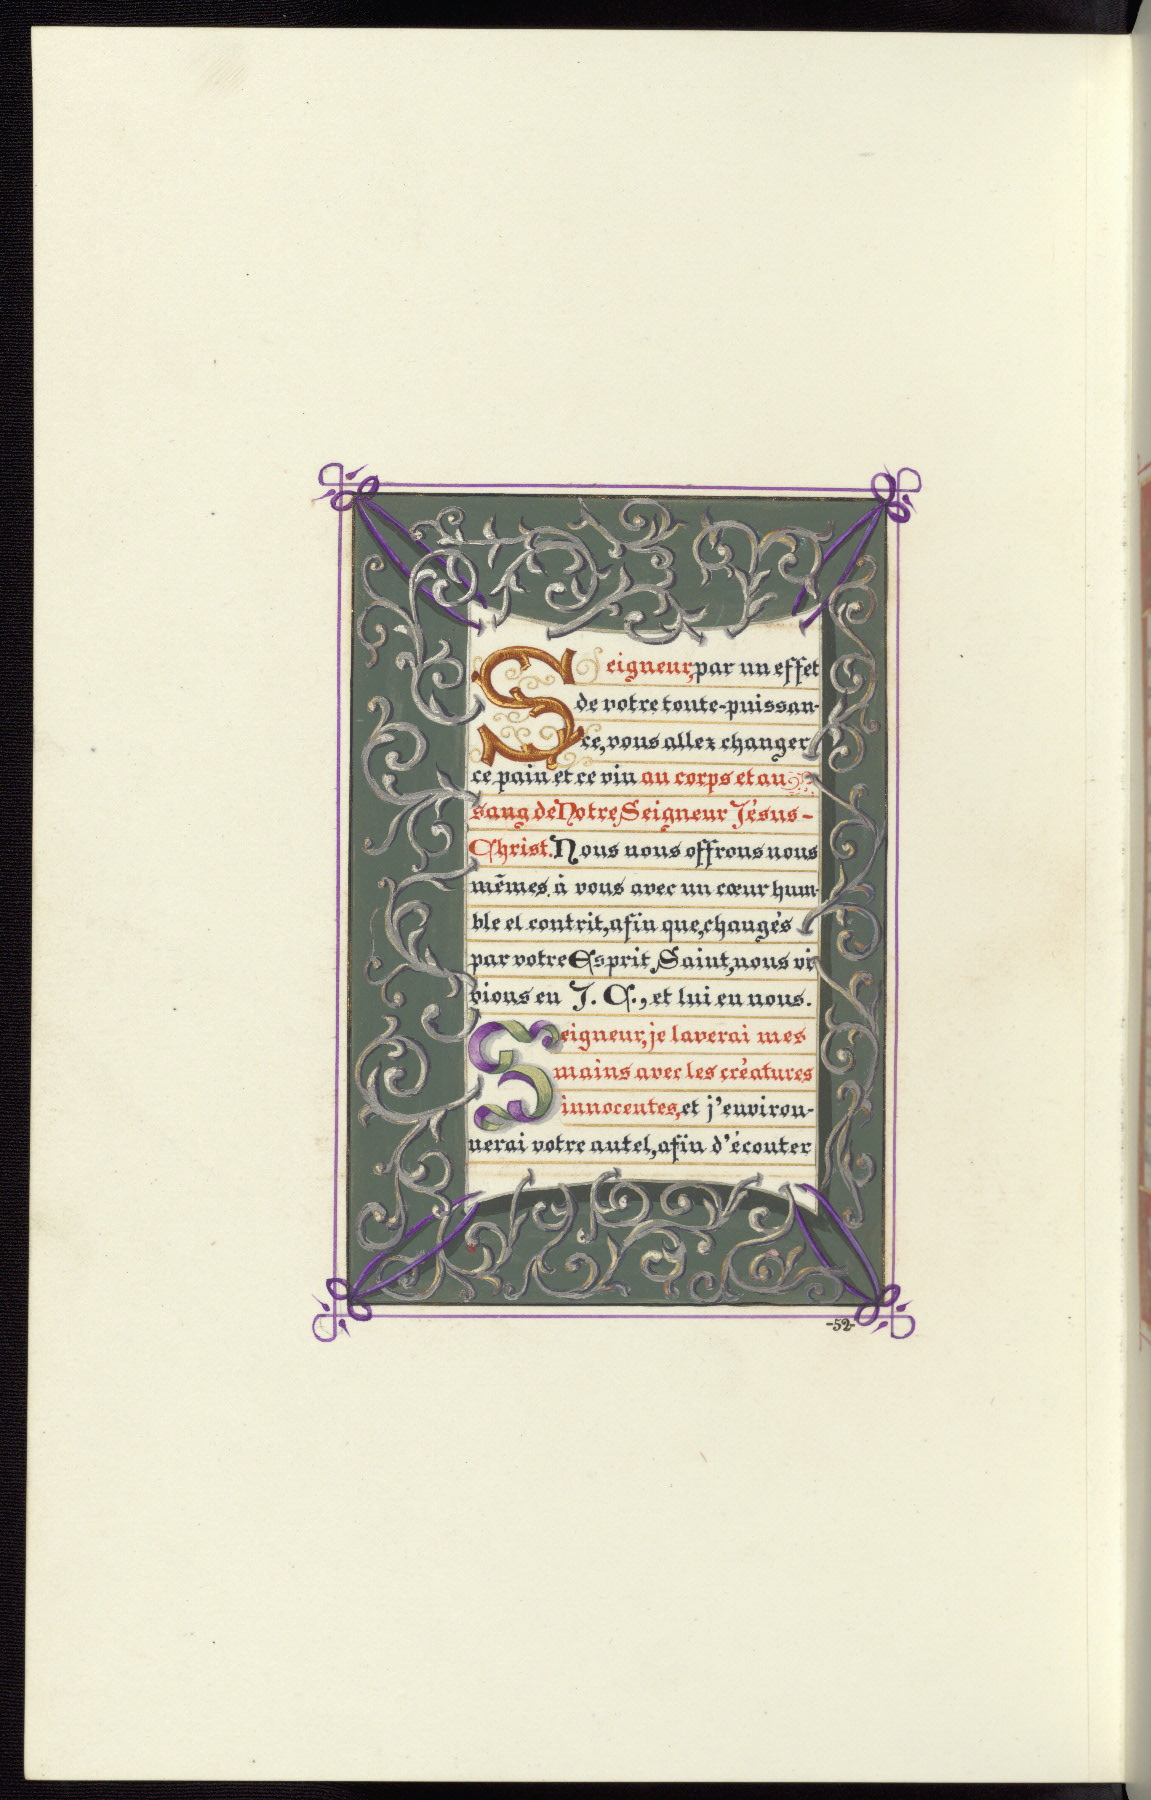 Seigneur, par un effet
de votre toute-puissan-
ce, vous allez changer
ce pain et ce vin au corps et au
sang de Notre Seigneur Jésus-
Christ. Nous nous offrons nous
mêmes à vous avec un cœur hum-
ble et contrit, afin que, changés
par votre Esprit Saint, nous vi
vions en J. C., et lui en nous.
Seigneur, je laverai mes
mains avec les créatures
innocentes, et j'environ-
nerai votre autel, afin d'écouter
-52-